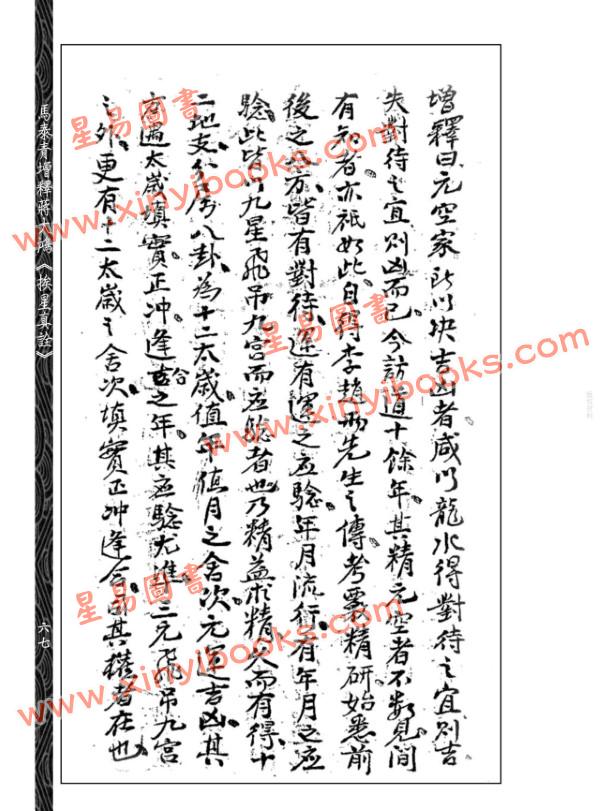 增釋曰元空家所以決吉凶者咸以龍水得對待之宜則吉
失對待之宜則凶而已今訪道十餘年其精元空者不數見間
有知者亦祇如此自得李趙两先生之傳考覈精研始悉前
後之應方皆有對待運有運之应驗年月流行有年月之应
驗此皆以九星飛吊九宮而应騐者也乃精益求精久而有得十
二地支分属八卦為十二太歲值年值月之舍次元運吉凶其
方遇太歲填實正冲逢合之年其应驗尤准三元飛吊九宮
之外更有十二太歲之舍次填實正冲逢合司其權者在也
馬泰青增釋蔣大鴻《挨星真詮》
六七
星易圖書
www.xinyibooks.com
星易圖書
www.xinyibooks.com
星易圖書
www.xinyibooks.com